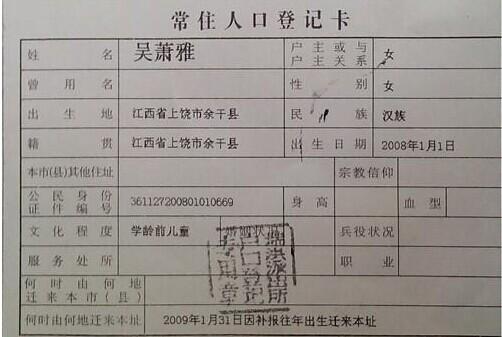 常住人口登记卡
姓名 吴萧雅 户主或与户主关系 女
曾用名 性别 女
出生地 江西省上饶市余干县 民族 汉族
籍贯 江西省上饶市余干县 出生日期 2008年1月1日
本市(县)其他住址 宗教信仰
公民身份证件编号 361127200801010669 身高 血型
文化程度 学龄前儿童 婚姻状况 兵役状况
服务处所 职业
何时由何地迁来本市(县)
何时由何地迁来本址 2009年1月31日因补报往年出生迁来本址
瑞洪派出所
户口登记
专用章